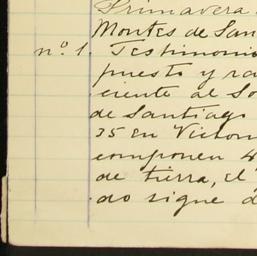 Primavera
Montes de San
nº 1. Testimonio
puesto y ra
ciente al So
de Santiago
35 en Victori
componen 4
de tierra, el
do sigue d